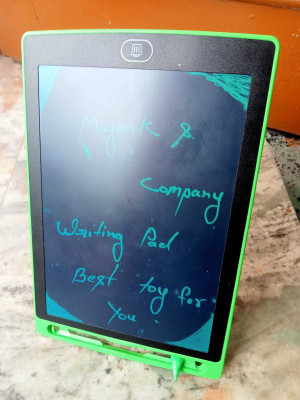 Mayank &
Company
Writing Pad
Best toy for
You